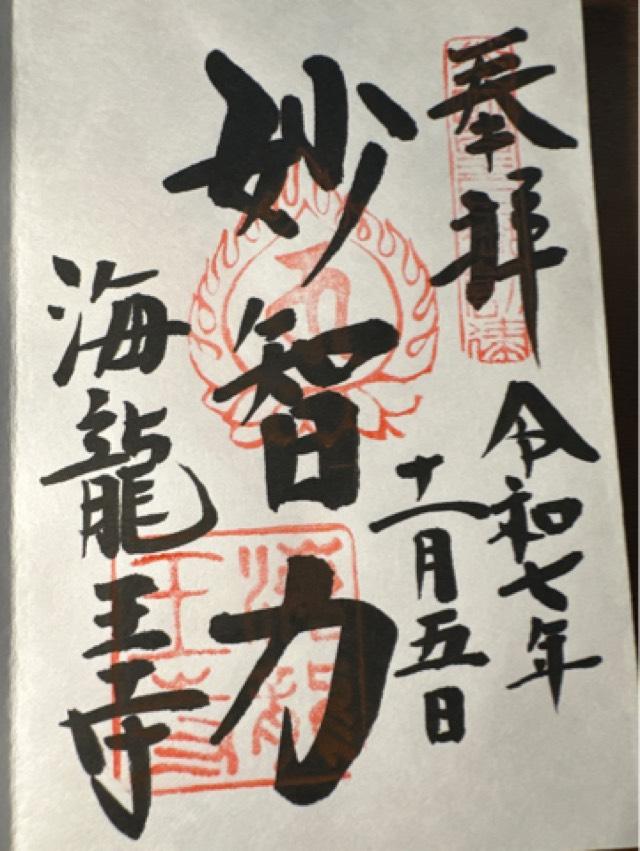 奉拝
令和七年
十一月五日
妙智力
海龍王寺